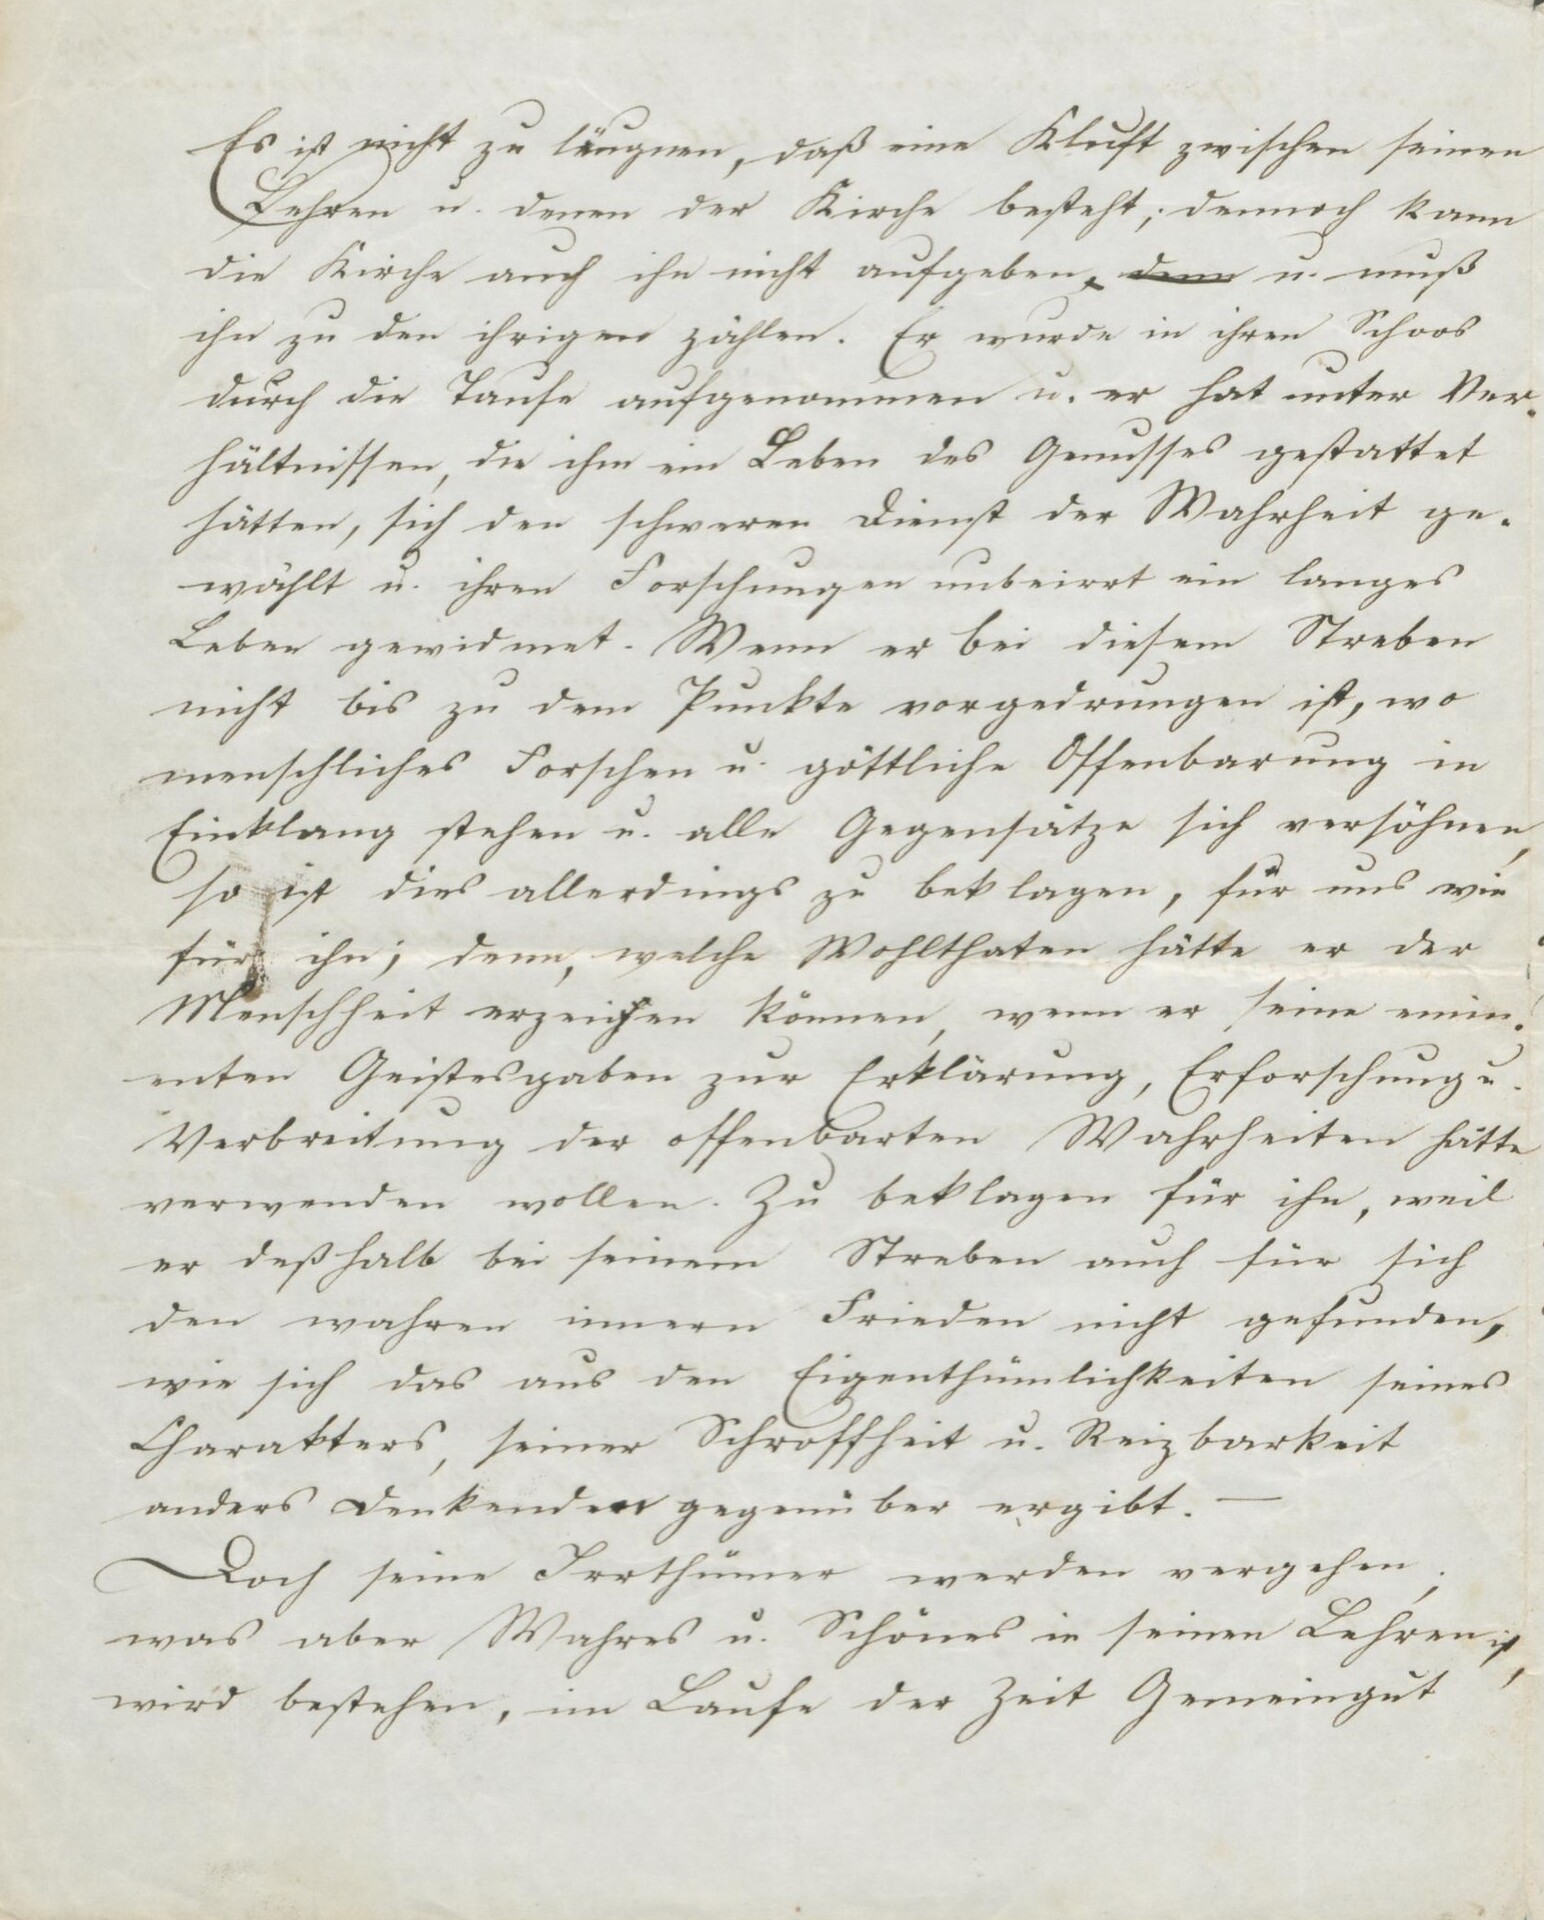 Es ist nicht zu läugnen, daß eine Kluft zwischen seinen
Lehren u. denen der Kirche besteht; dennoch kann
die Kirche auch ihn nicht aufgeben, denn u. muß
ihn zu den ihrigen zählen. Er wurde in ihren Schoos
durch die Taufe aufgenommen u. er hat unter Ver-
hältnissen, die ihm ein Leben des Genusses gestattet
hätten, sich den schweren Dienst der Wahrheit ge-
wählt u. ihren Forschungen unbeirrt ein langes
Leben gewidmet. Wenn er bei diesem Streben
nicht bis zu dem Punkte vorgedrungen ist, wo
menschliches Forschen u. göttliche Offenbarung in
Einklang stehen u. alle Gegensätze sich versöhnen,
so ist dies allerdings zu beklagen, für uns wie
für ihn; denn, welche Wohlthaten hätte er der
Menschheit erzeichen können, wenn er seine emin-
enten Geistesgaben zur Erklärung, Erforschung u.
Verbreitung der offenbarten Wahrheiten hätte
verwenden wollen. Zu beklagen für ihn, weil
er deßhalb bei seinem Streben auch für sich
den wahren innern Frieden nicht gefunden,
wie sich das aus den Eigenthümlichkeiten seines
Charakters, seiner Schroffheit u. Reizbarkeit
anders Denkenden gegenüber ergibt. —
Doch seine Irrthümer werden vergehen;
was aber Wahres u. Schönes in seinen Lehren ist,
wird bestehen, im Laufe der Zeit Gemeingut